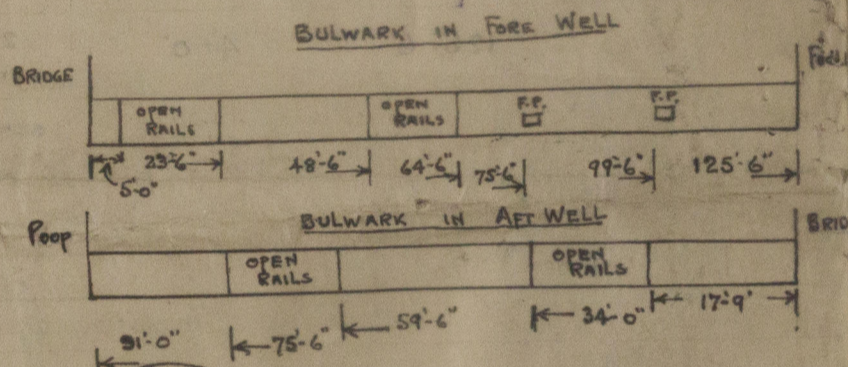 BULWARK IN FORE WELL
BRIDGE
OPEN RAILS
OPEN RAILS
F.P.
F.P.
5'-0"
23'-6"
48'-6"
64'-6"
75'-6"
99'-6"
125'-6"
BULWARK IN AFT WELL
POOP
OPEN RAILS
OPEN RAILS
91'-0"
75'-6"
59'-6"
34'-0"
17'-9'